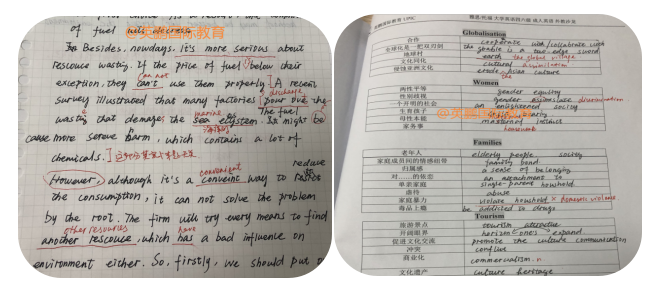 of fuel will decrease.
@英藤国际教育
Besides, nowdays, it's more serious about
rescouce wasting. If the price of fuel below their
can not
exception, they can't use them properly. [A recent
discharge
survey illustrated that many factories pour out the
The fuel
wasting that damages the sea ecystem. It might be
cause more serove harm, which contains a lot of
chemicals.]
convenient
reduce
However, although it's a conveint way to
the consumption, it can not solve the problem
by the root. The firm will try every means to find
other resources
another rescouce, which has a bad influence on
environment either. So, firstly, we should put
Globalisation
合作 corporate with/collabrate with
全球化是一把双刃剑 the goable is a two-edge sword
地球村 earth the global village
文化同化 cultural assimilation
侵蚀亚洲文化 erode Asian culture
the
Women
两性平等 gender equity
性别歧视 gender discrimination
十开明的社会 an enlightened society
生育孩子
@英藤国际教育
母性本能
家务事 housework
Families
老年人 elderly people society
家庭成员间的情感纽带 family bond
归属感 a sense of belonging
对......的依恋 an attachment to
单亲家庭 single-parent houshold
虐待 abuse
家庭暴力 violate houshold × domestic violence
毒品上瘾 be addicted to drugs
Tourism
旅游景点 tourism attractive
开阔眼界 horizon one's expand
促进文化交流 promote the culture communication
冲突 conflive
商业化 commercialism
文化遗产 culture heritage